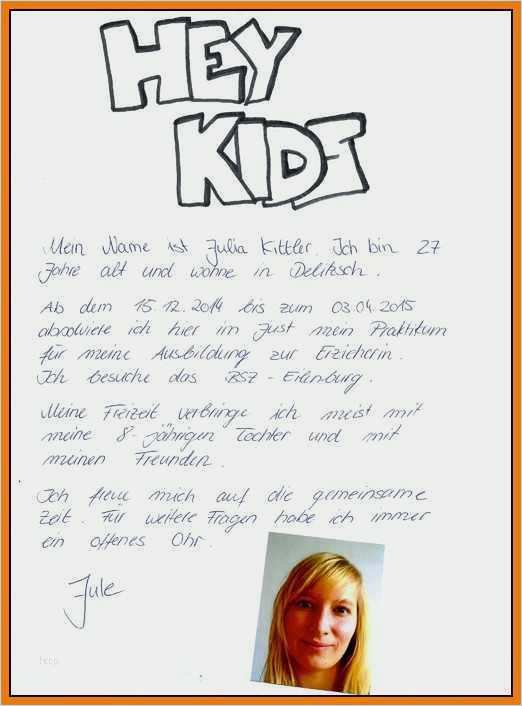 HEY
KIDS
Mein Name ist Julia Kittler. Ich bin 27
Jahre alt und wohne in Delitzsch.
Ab dem 15.12.2014 bis zum 03.04.2015
absolviere ich hier im Just mein Praktikum
für meine Ausbildung zur Erzieherin.
Ich besuche das BSZ - Eilenburg.
Meine Freizeit verbringe ich meist mit
meine 8-jährigen Tochter und mit
meinen Freunden.
Ich freue mich auf die gemeinsame
Zeit. Für weitere Fragen habe ich immer
ein offenes Ohr.
Jule